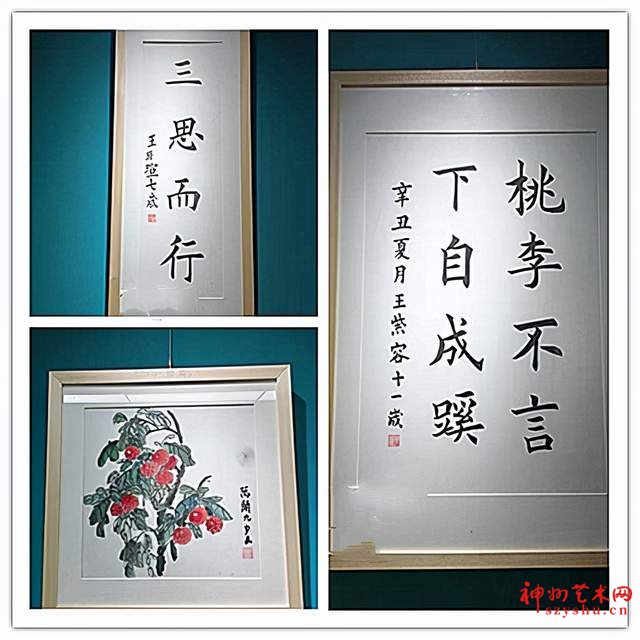 三思而行
王玗瑄七岁
桃李不言
下自成蹊
辛丑夏月王紫容十一岁
神州艺术网
szyshu.cn